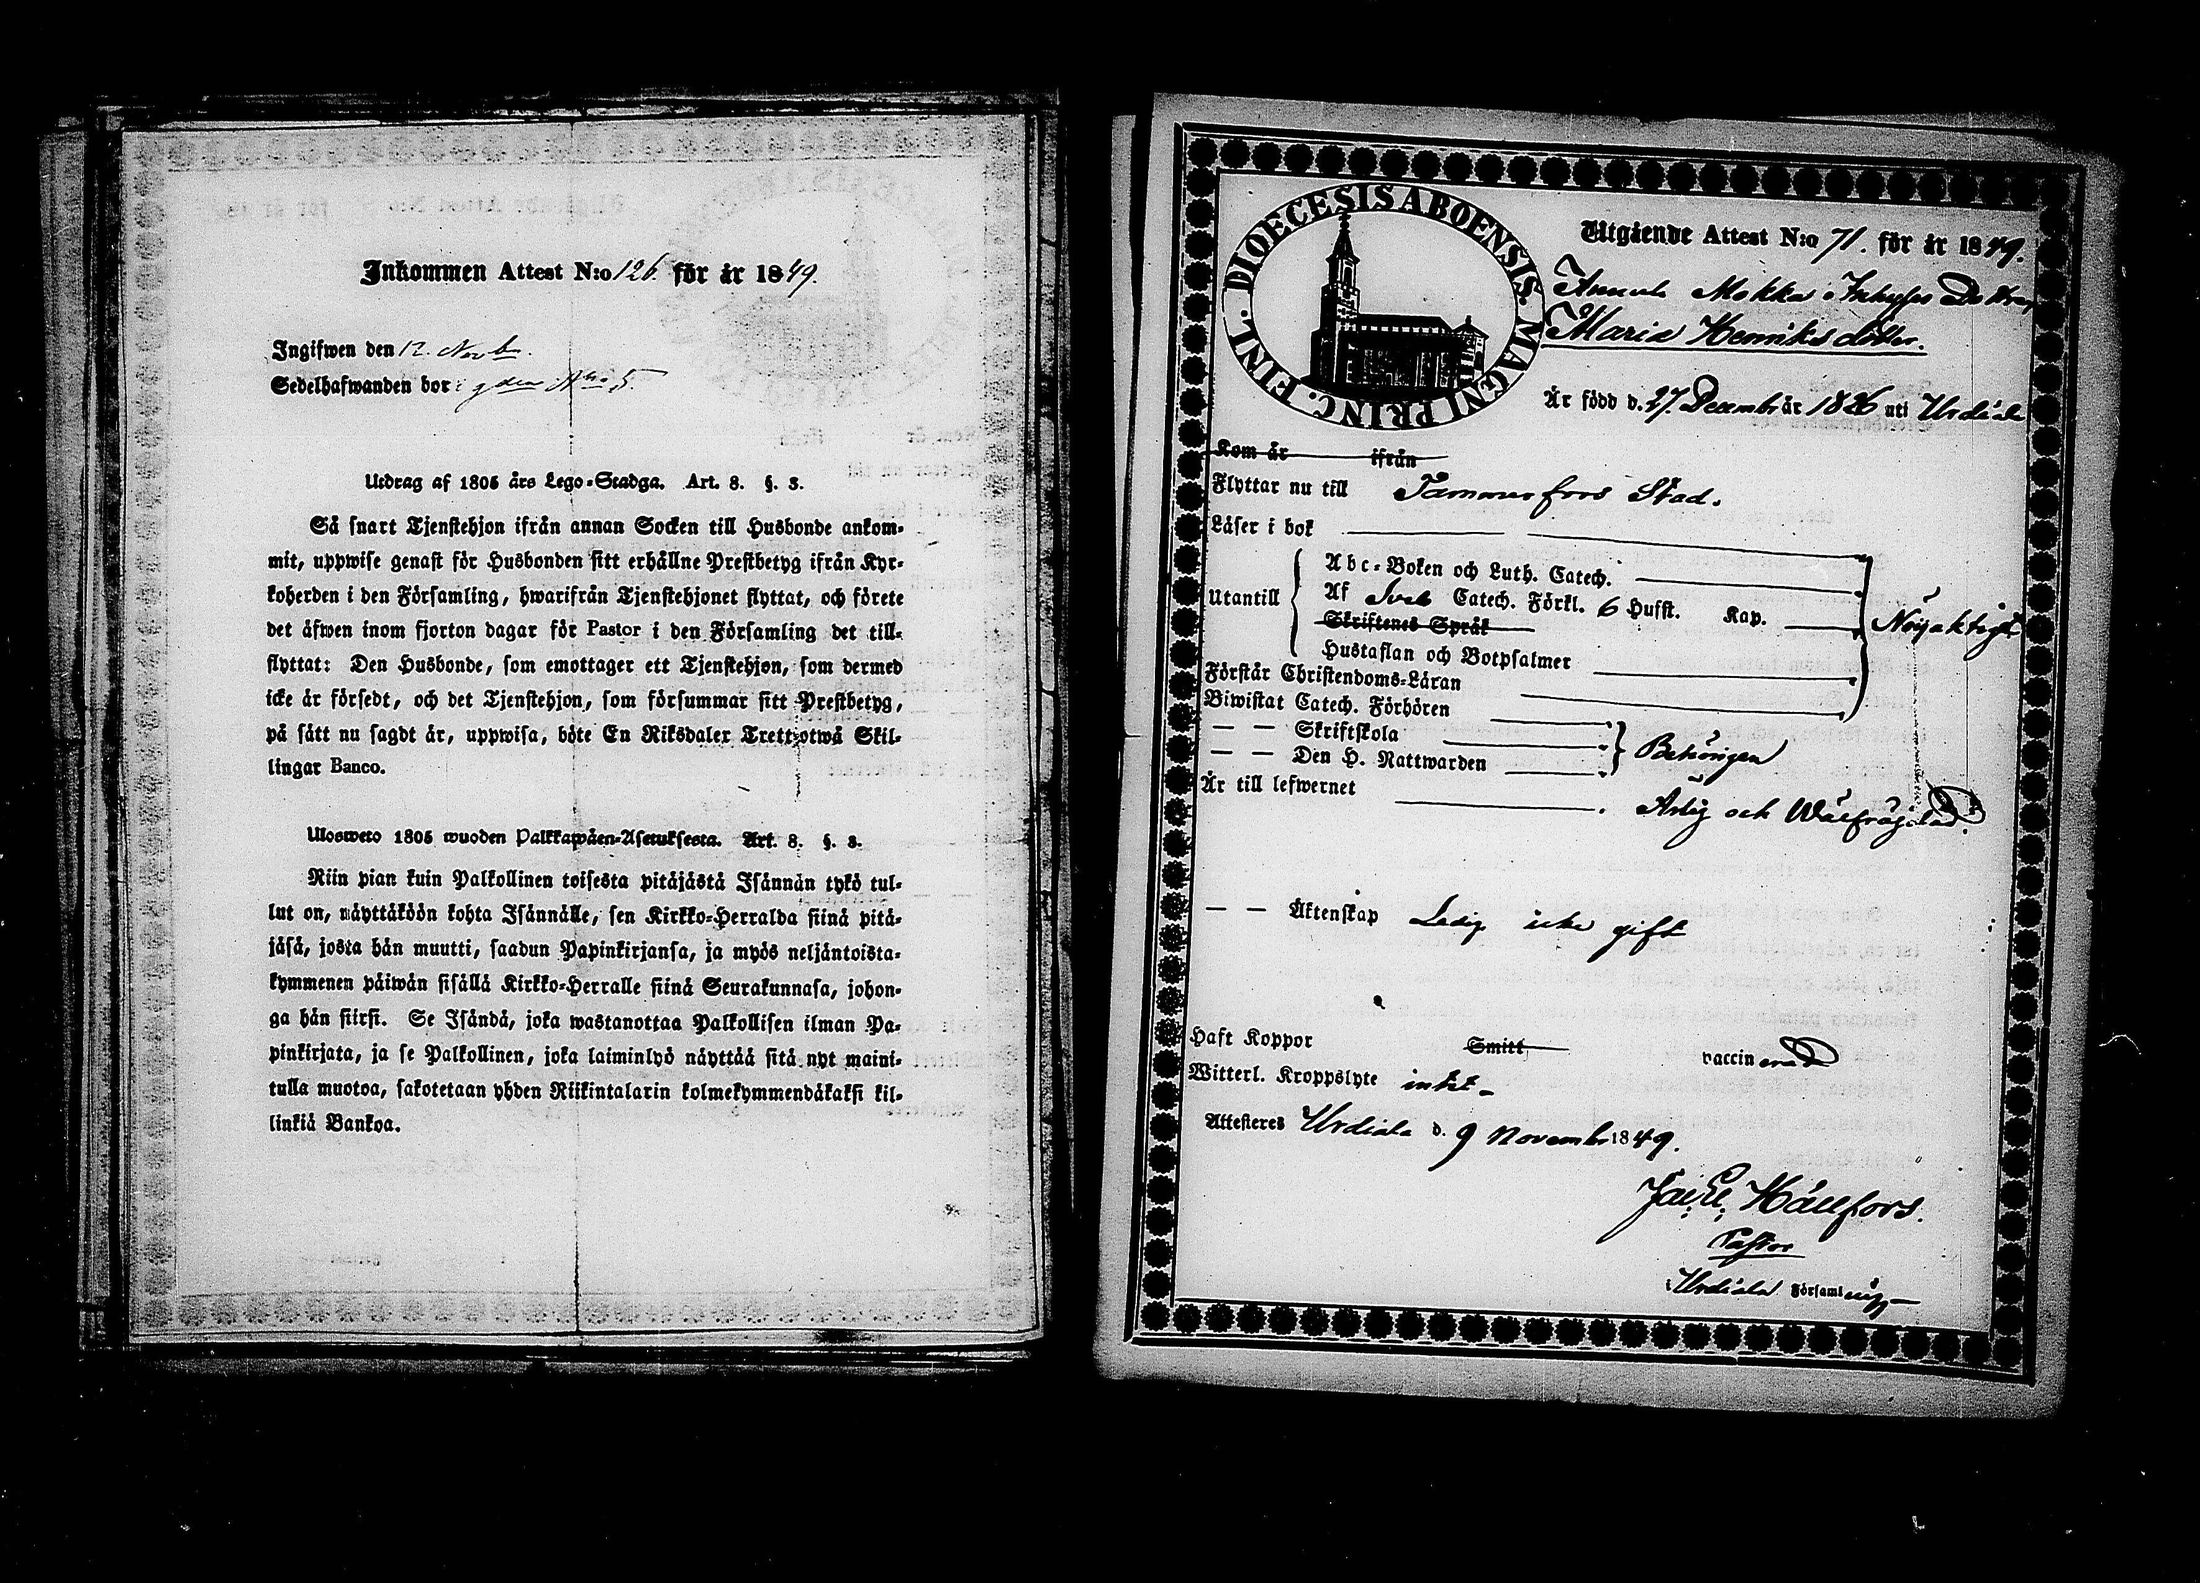 Inkommen Attest N:o 126. för år 1849.
Ingifwen den 12. Novb.
Sedelhafwanden bor i gden N:o 5.
Utdrag af 1805 års Lego-Stadga. Art. 8. §. 3.
Så snart Tjenstehjon ifrån annan Socken till Husbonde ankom-
mit, uppwise genast för Husbonden sitt erhållne Prestbetyg ifrån Kyr-
koherden i den Församling, hwarifrån Tjenstehjonet flyttat, och förete
det äfwen inom fjorton dagar för Pastor i den Församling det till-
flyttat: Den Husbonde, som emottager ett Tjenstehjon, som dermed
icke är försedt, och det Tjenstehjon, som försummar sitt Prestbetyg,
på sätt nu sagdt är, uppwisa, böte En Riksdaler Trettiotwå Skil-
lingar Banco.
Ulosweto 1805 wuoden Palkkawäen-Asetuksesta. Art. 8. §. 3.
Niin pian kuin Palkollinen toisesta pitäjästä Isännän tykö tul-
lut on, näyttäköön kohta Isännälle, sen Kirkko-Herralda siinä pitä-
jäsä, josta hän muutti, saadun Papinkirjansa, ja myös neljäntoista-
kymmenen päiwän sisällä Kirkko-Herralle siinä Seurakunnasa, johon-
ga hän siirsi. Se Isändä, joka wastanottaa Palkollisen ilman Pa-
pinkirjata, ja se Palkollinen, joka laiminlyö näyttää sitä nyt maini-
tulla muotoa, sakotetaan yhden Riikintalarin kolmekymmendäkaksi kil-
linkiä Bankoa.
DIOECESIS ABOENSIS. MAGNI PRINC. FINL.
Utgående Attest N:o 71. för år 1849.
Mokka Inhyses Dottren
Maria Henriksdotter.
Är född d. 27. Decembr år 1826 uti Urdiala
Kom år ifrån
Flyttar nu till Tammerfors Stad.
Läser i bok
Utantill
Abc-Boken och Luth. Catech.
Af Sveb Catech. Förkl. 6 Hufst. Kap.
Skriftenes Språk
Hustaflan och Botpsalmer
Nöjaktigt
Förstår Christendoms-Läran
Biwistat Catech. Förhören
— — Skriftskola
— — Den H. Nattwarden
Behörigen
Är till lefwernet Ärlig och Wälfrägdad.
— — Äktenskap Ledig icke gift
Haft Koppor Smitt vaccinerad
Witterl. Kroppslyte intet
Attesteres Urdiala d. 9 Novembr 1849.
Hällfors.
Pastor
i Urdiala Församling